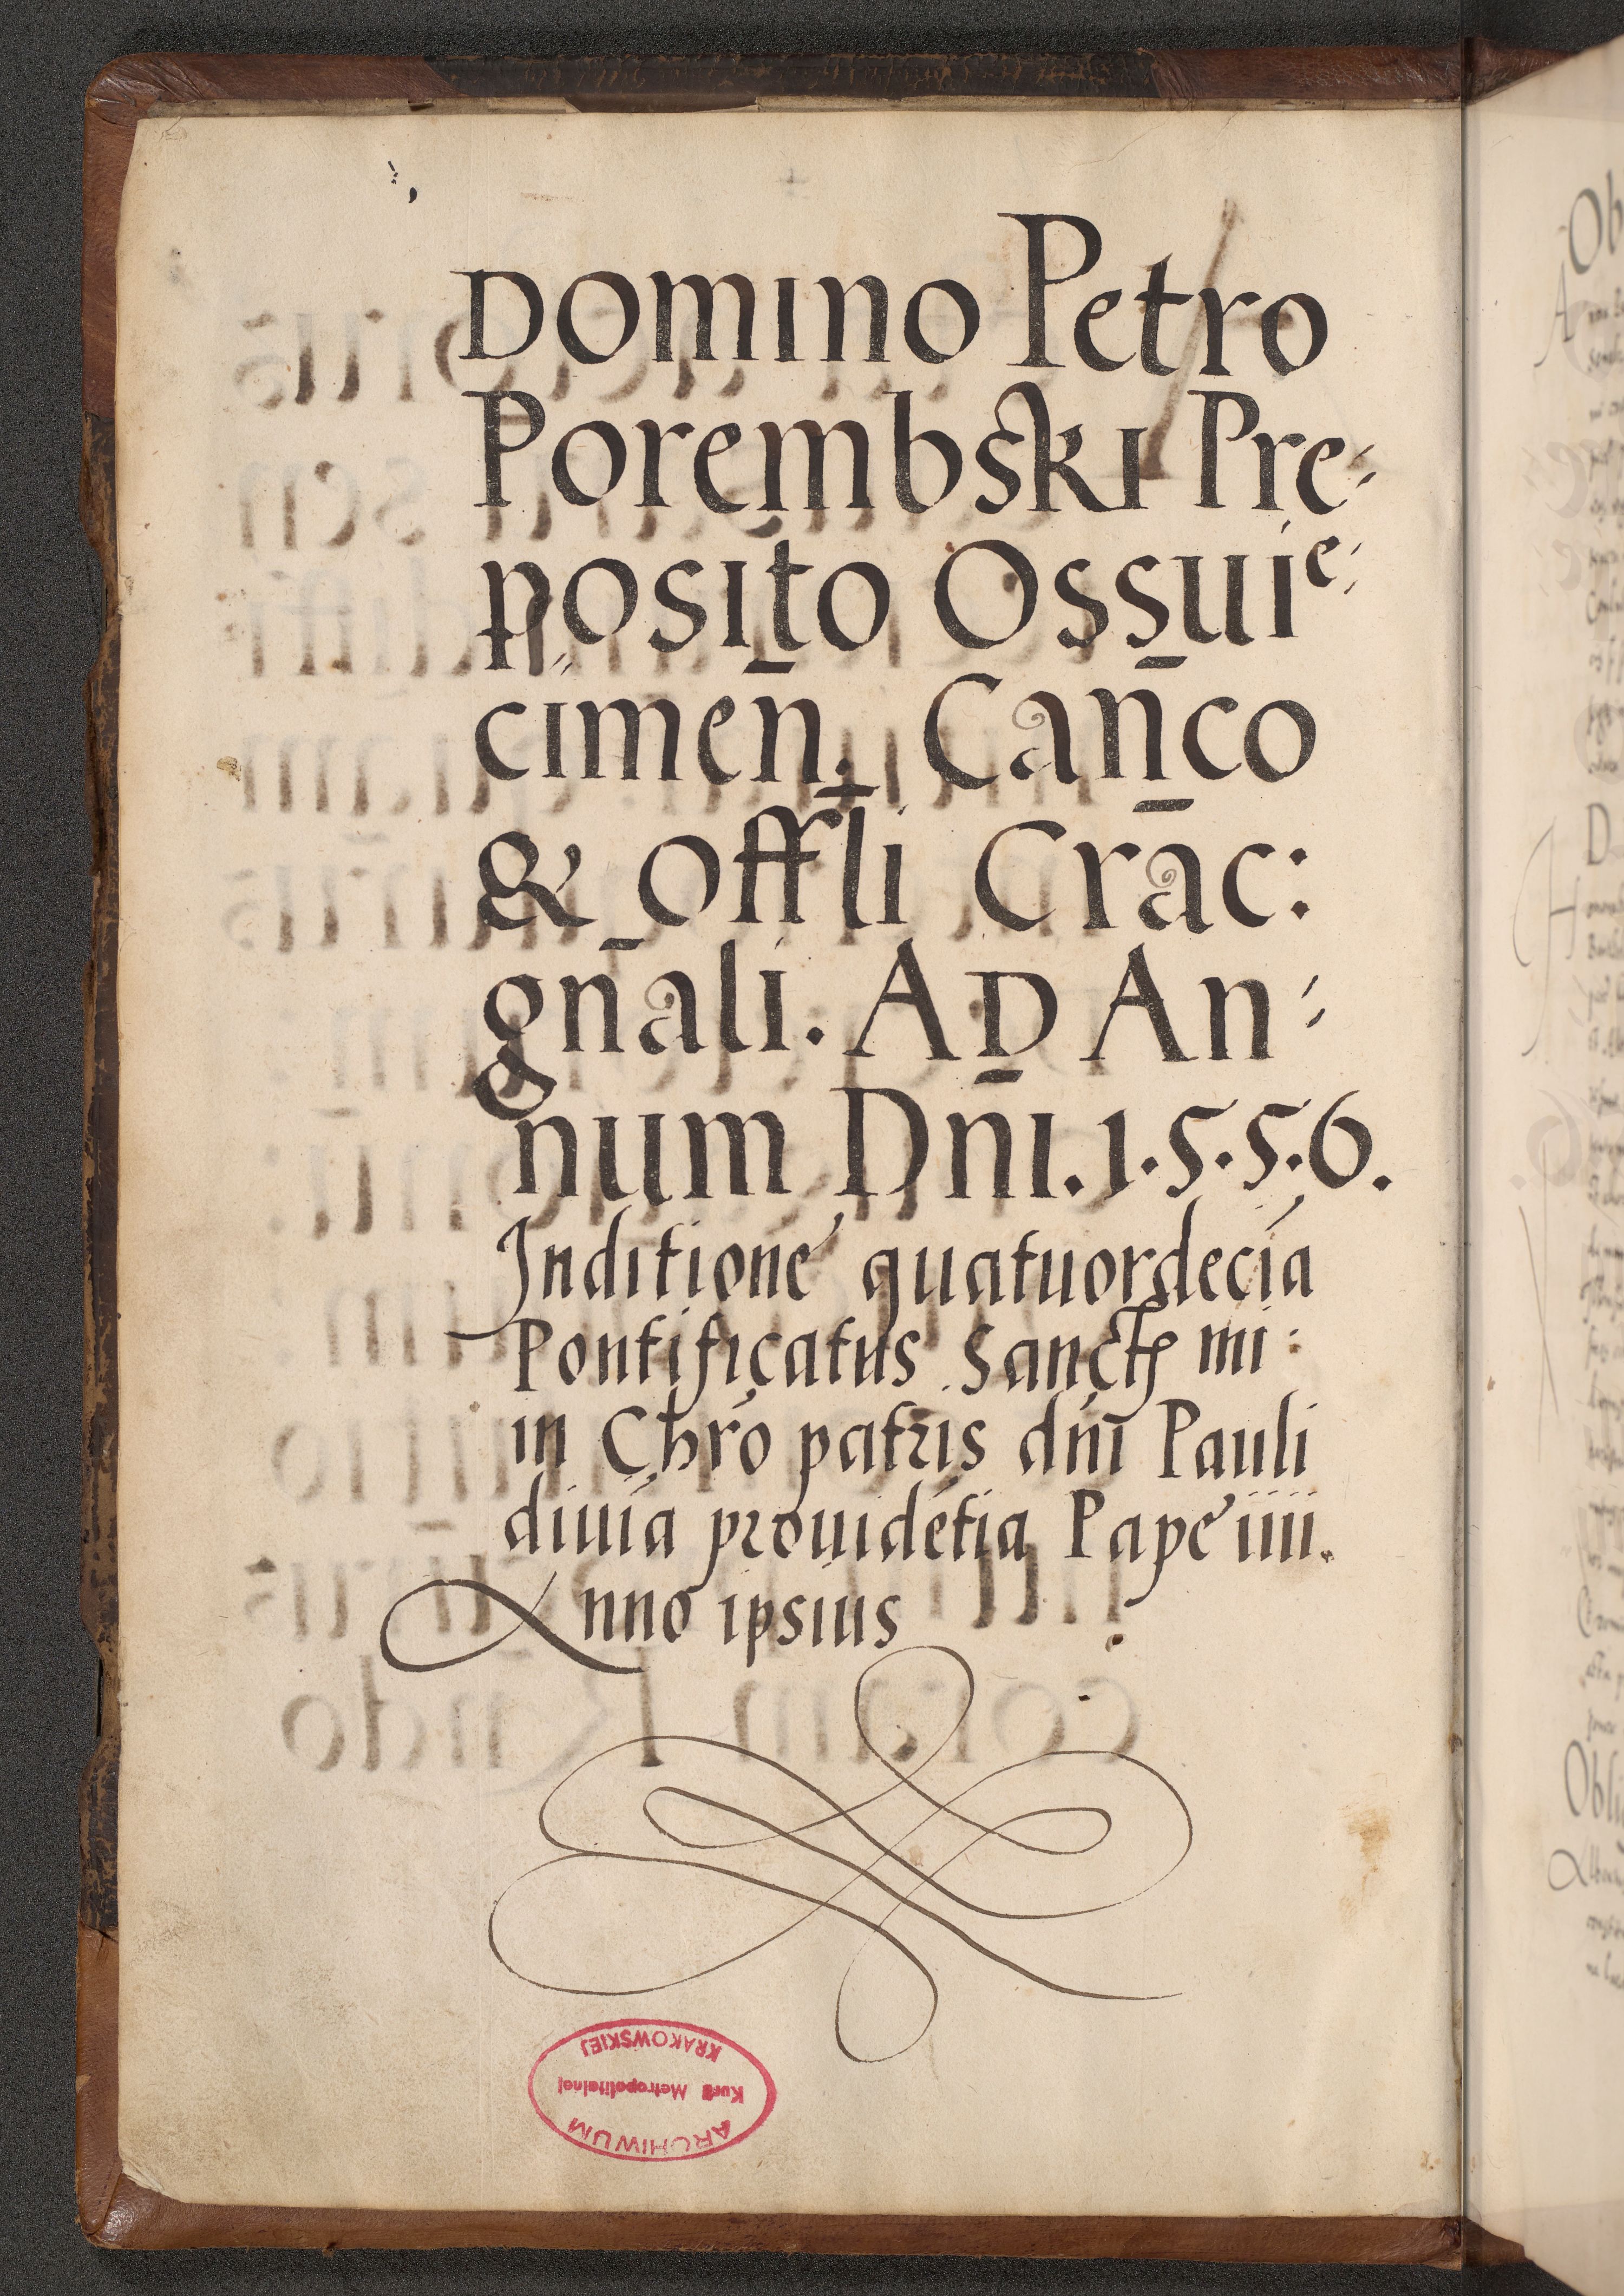 Domino Petro
Porembski Pre-
posito Ossuie-
cimen̄. Can̄co
& Offl̄i Crac:
gn̄ali. AD An-
num Dn̄i. 1.5.5.6.
Inditione quatuordecīa
Pontificatus Sanctꝭ mi:
in Chr̄o patris dn̄i Pauli
diuīa prouidētia Pape iiii.
Anno ipsius
ARCHIWUM
Kurii Metropolitalnej
KRAKOWSKIEJ